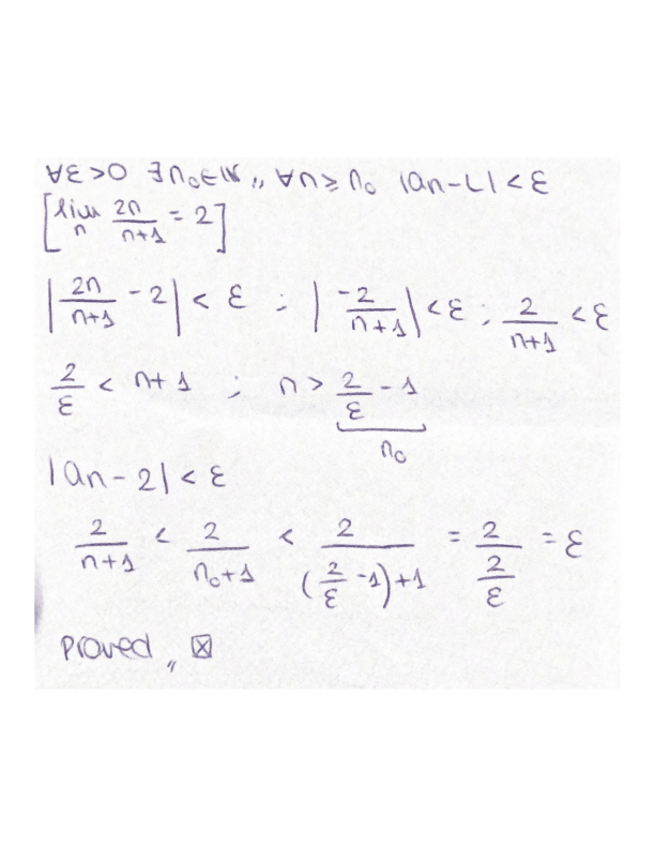 ∀ε>0 ∃n₀∈ℕ,, ∀n≥n₀ |an-L|<ε
[lim_n 2n/(n+1) = 2]
|2n/(n+1) - 2| < ε ; |-2/(n+1)| < ε ; 2/(n+1) < ε
2/ε < n+1 ; n > 2/ε - 1
n₀
|an-2| < ε
2/(n+1) < 2/(n₀+1) < 2/((2/ε -1)+1) = 2/(2/ε) = ε
proved,, ☒